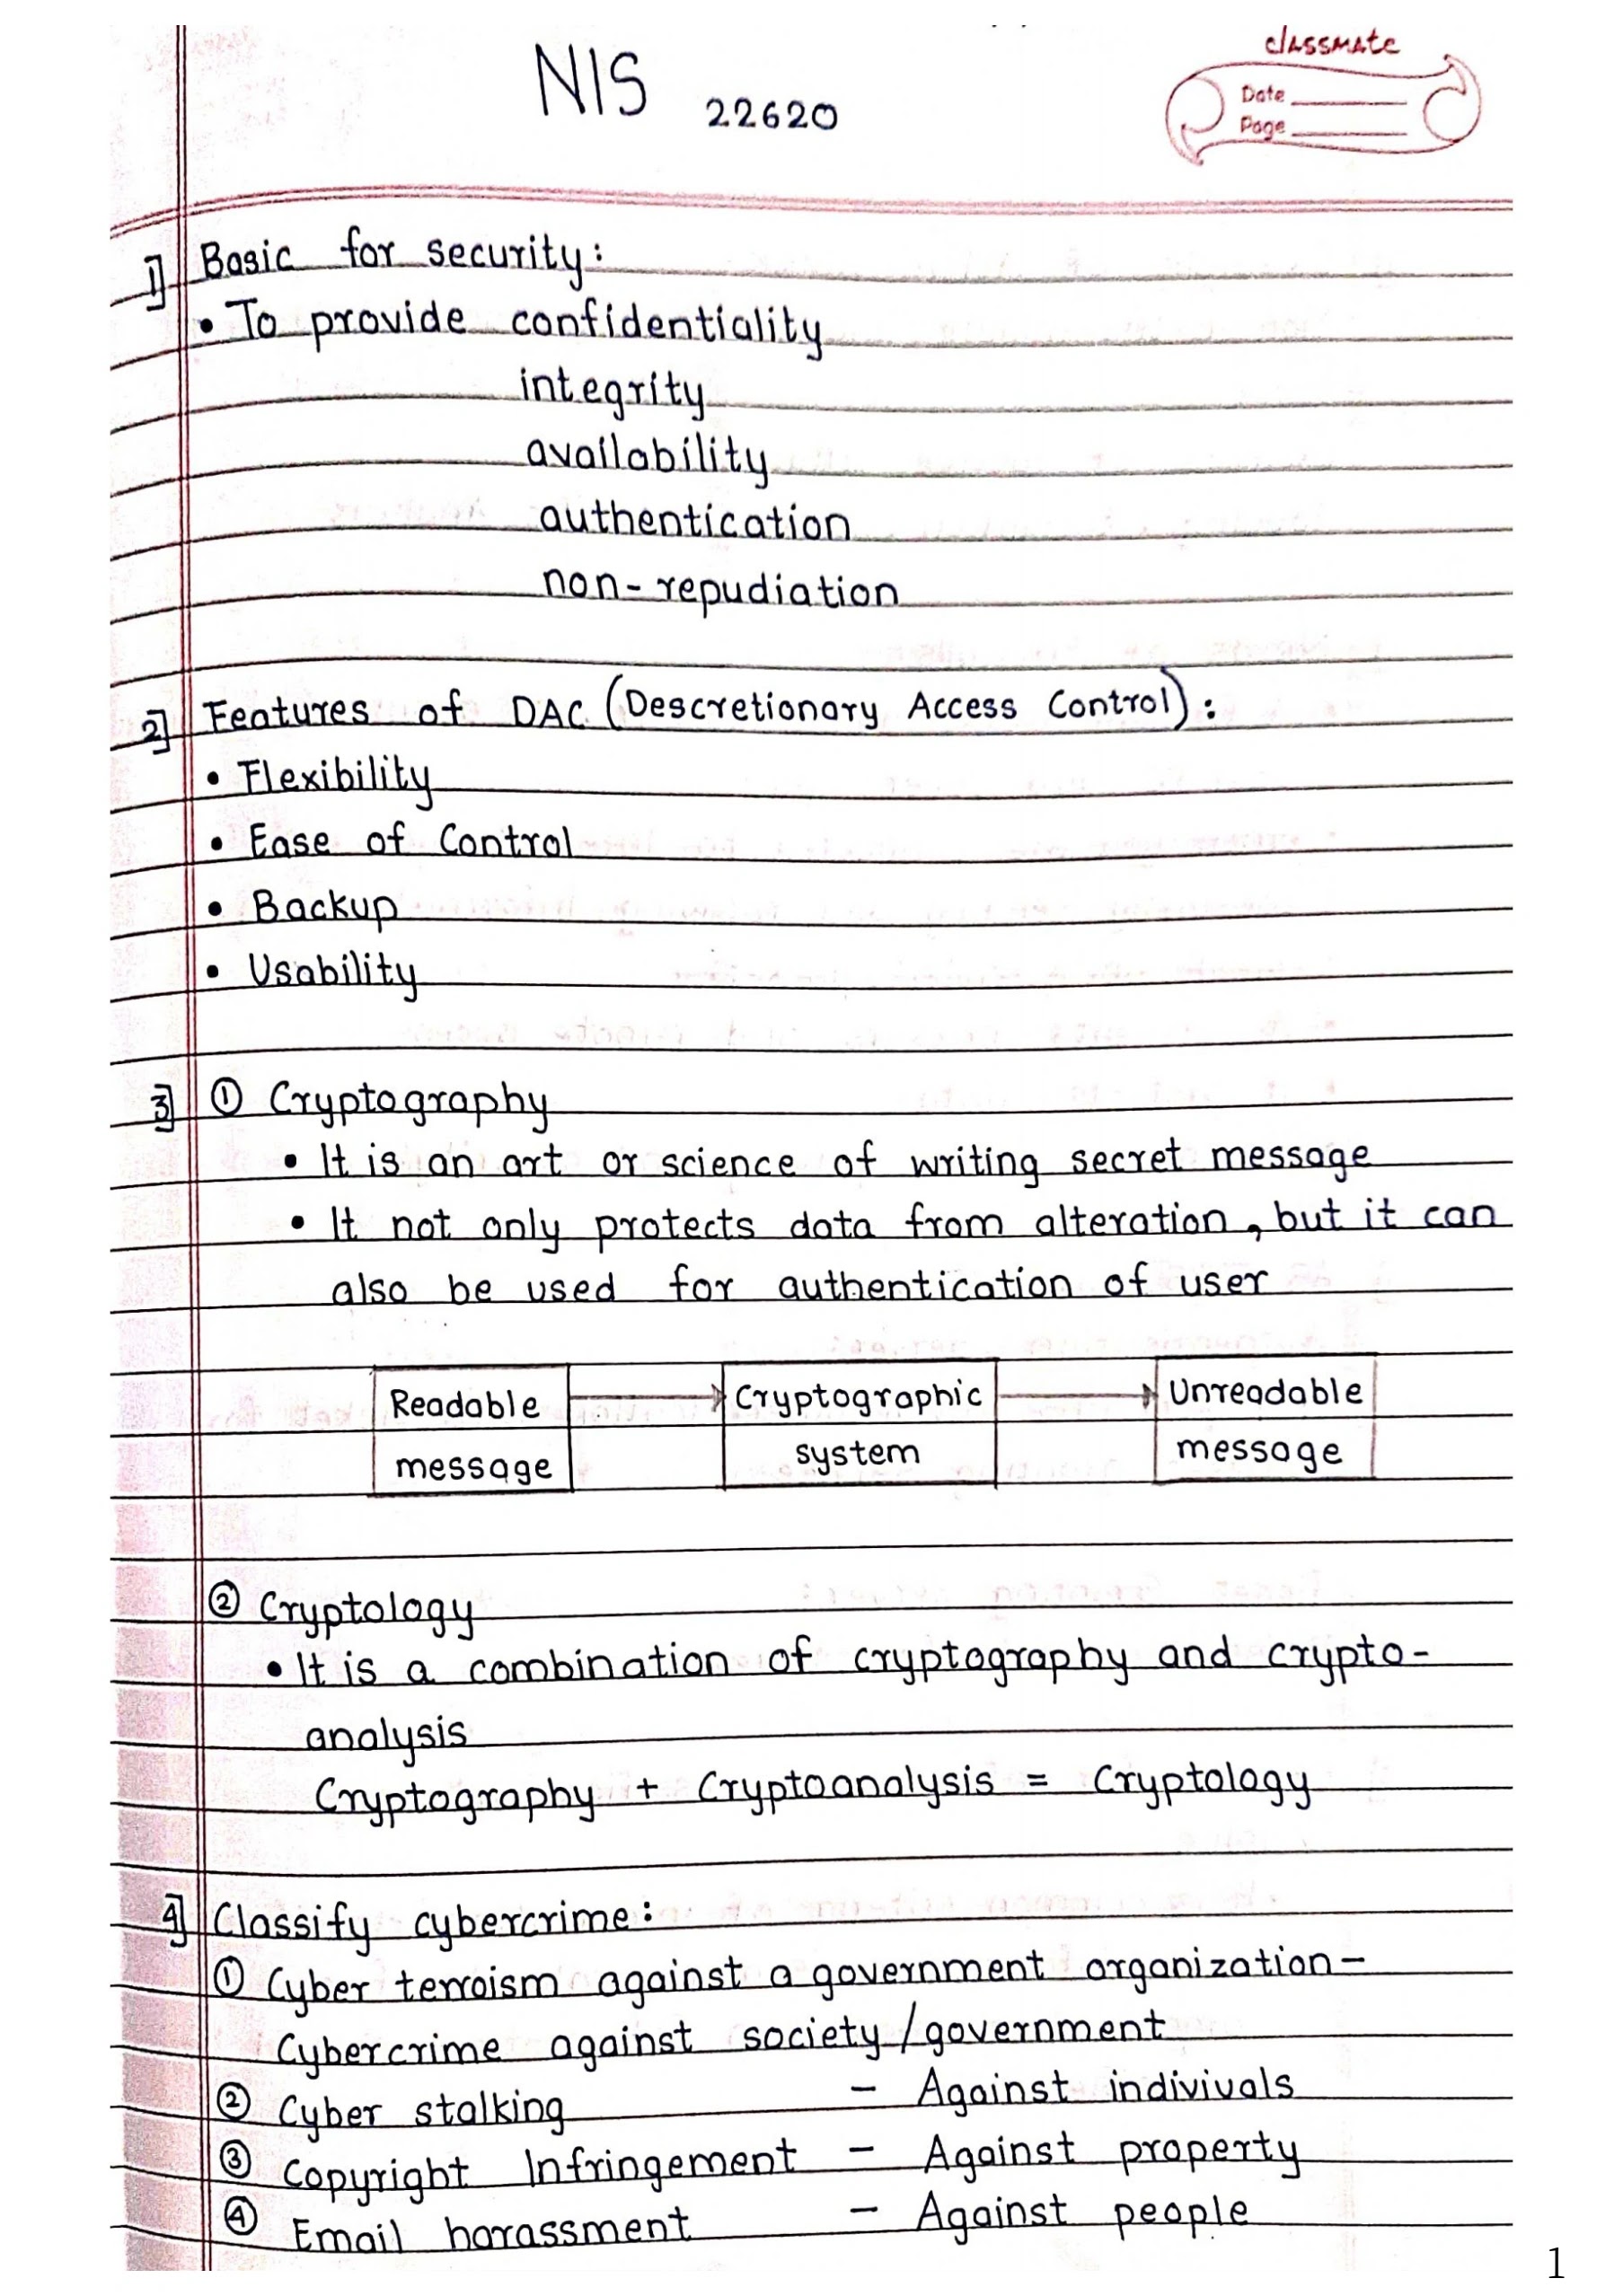 classmate
Date
Page
NIS 22620
1] Basic for security:
• To provide confidentiality
integrity
availability
authentication
non-repudiation
2] Features of DAC (Descretionary Access Control):
• Flexibility
• Ease of Control
• Backup
• Usability
3] ① Cryptography
• It is an art or science of writing secret message
• It not only protects data from alteration, but it can
also be used for authentication of user
Readable message
Cryptographic system
Unreadable message
② Cryptology
• It is a combination of cryptography and crypto-
analysis
Cryptography + Cryptoanalysis = Cryptology
4] Classify cybercrime:
① Cyber terroism against a government organization-
Cybercrime against society/government
② Cyber stalking - Against indiviuals
③ Copyright Infringement - Against property
④ Email harassment - Against people
1